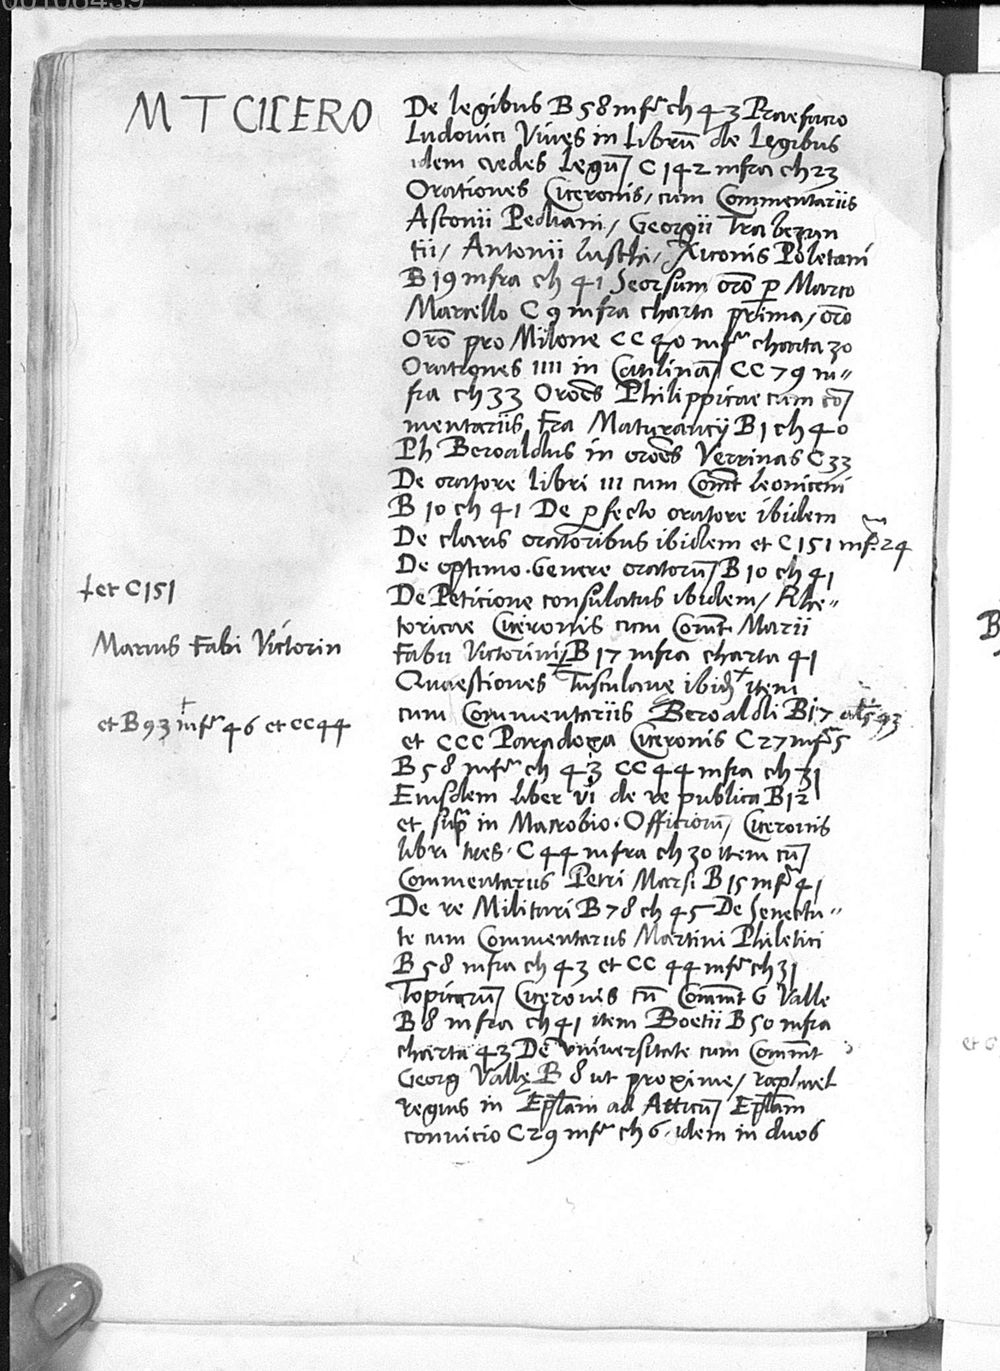 00106439
M T CICERO
De legibus B 58 infr ch 43 Praefatio
Ludovici Vives in librū de Legibus
idem aedes Legū C 142 infra ch 23
Orationes Ciceronis, cum Commentariis
Asconii Pediani, Georgii Trabezun
tii, Antonii Luschi, Xiconis Poletani
B 19 infra ch 41 Seorsum orō p Marco
Marcello C 9 infra charta prima, orō
Orō pro Milone CC 40 infr charta 30
Orationes IIII in Catilinā CC 79 in"
fra ch 33 Oroēs Philippicae cum cō
mentariis Fra Maturancij B 1 ch 40
Ph Beroaldus in oroēs Verrinas C 33
De oratore libri III cum Comt Leoniceni
B 10 ch 41 De pfecto oratore ibidem
De claris oratoribus ibidem et C 151 infr. 24
De optimo Genere oratorū B 10 ch 41
† et C 151
De Peticione consulatus ibidem, Rhe"
toricae Ciceronis cum Comt Marii
Marius Fabi Victorin
Fabii Victorinij B 17 infra charta 41
Quaestiones Tusculane ibid item
et B 93 infr 46 et CC 44
cum Commentariis Beroaldi B 17
et CCC Paradoxa Ciceronis C 27 infr 5
B 58 infr ch 43 CC 44 infra ch 31
Eiusdem liber vi de re publica B 12
et supr in Macrobio. Officiorū, Ciceronis
libri tres. C 44 infra ch 30 item cū
Commentariis Petri Marsi B 15 infr 41
De re Militari B 78 ch 45 De Senectu"
te cum Commentariis Martini Philetici
B 58 infra ch 43 et CC 44 infr ch 31
Topicorū Ciceronis cū Commt G Valle
B 8 infra ch 41 item Boetii B 50 infra
charta 43 De universitate cum Commt
Georg Vallę B 8 ut proxime, raphael
regius in Eplam ad Atticū Eplam
convicio C 29 infr ch 6. idem in duos